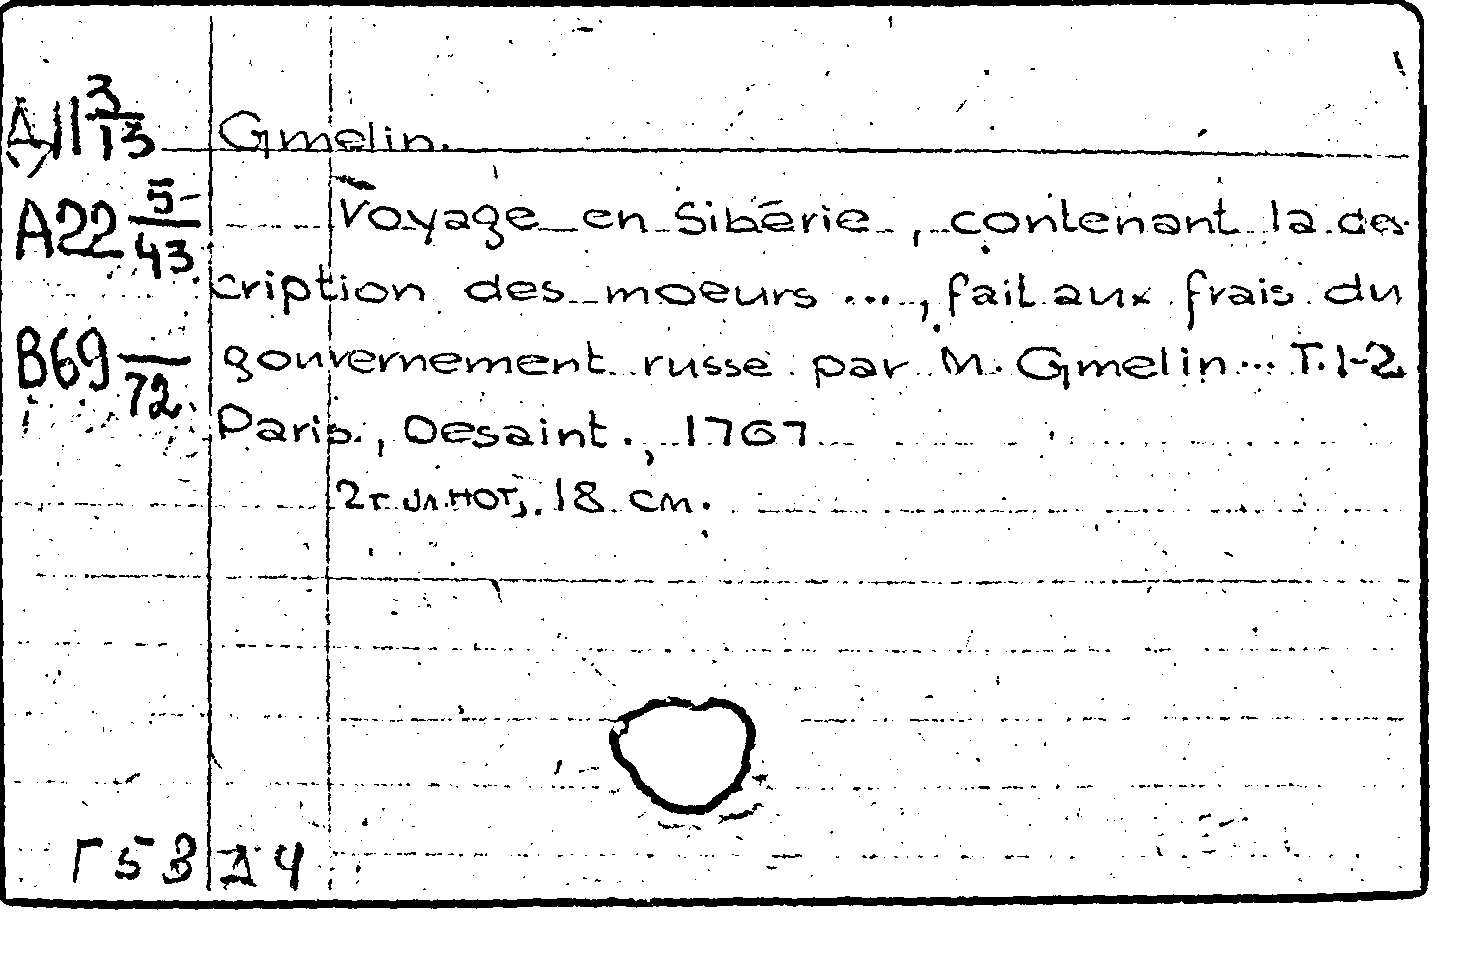 A11 3/13
Gmelin.
A22 5/43
Voyage en Sibérie, contenant la des-
cription des moeurs ..., fait aux frais du
B69 —/72
gouvernement russe par M. Gmelin... T.1-2
Paris., Desaint., 1767
2т. ил. нот., 18 см.
Г53 Д4